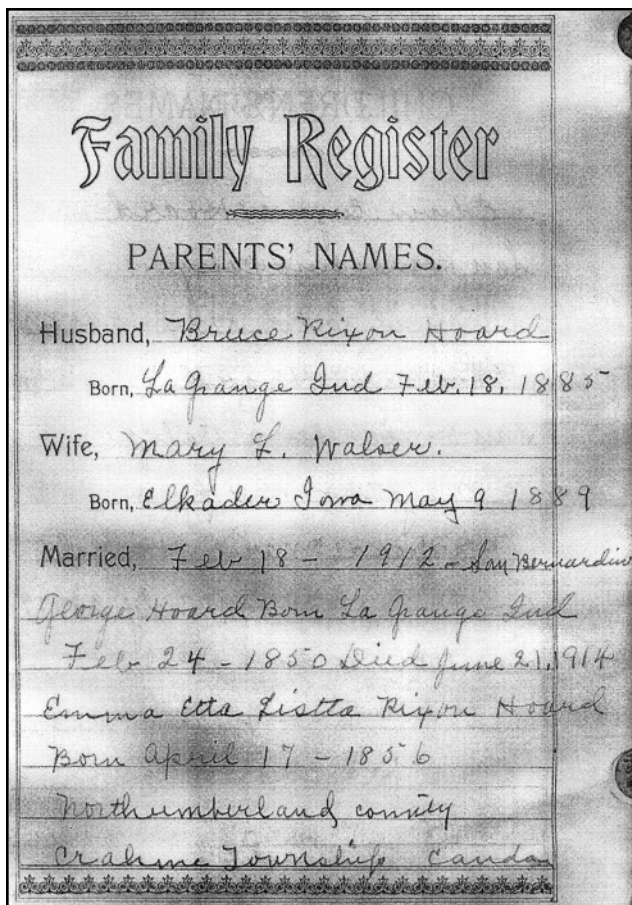 Family Register
PARENTS' NAMES.
Husband, Bruce Rixon Hoard
Born, La Grange Ind Feb. 18, 1885
Wife, Mary L. Walser.
Born, Elkader Iowa May 9 1889
Married, Feb 18 - 1912 - San Bernardino
George Hoard Born La Grange Ind
Feb 24 - 1850 Died June 21, 1914
Emma Etta Rixon Hoard
Born April 17 - 1856
Northumberland county
Township Canda